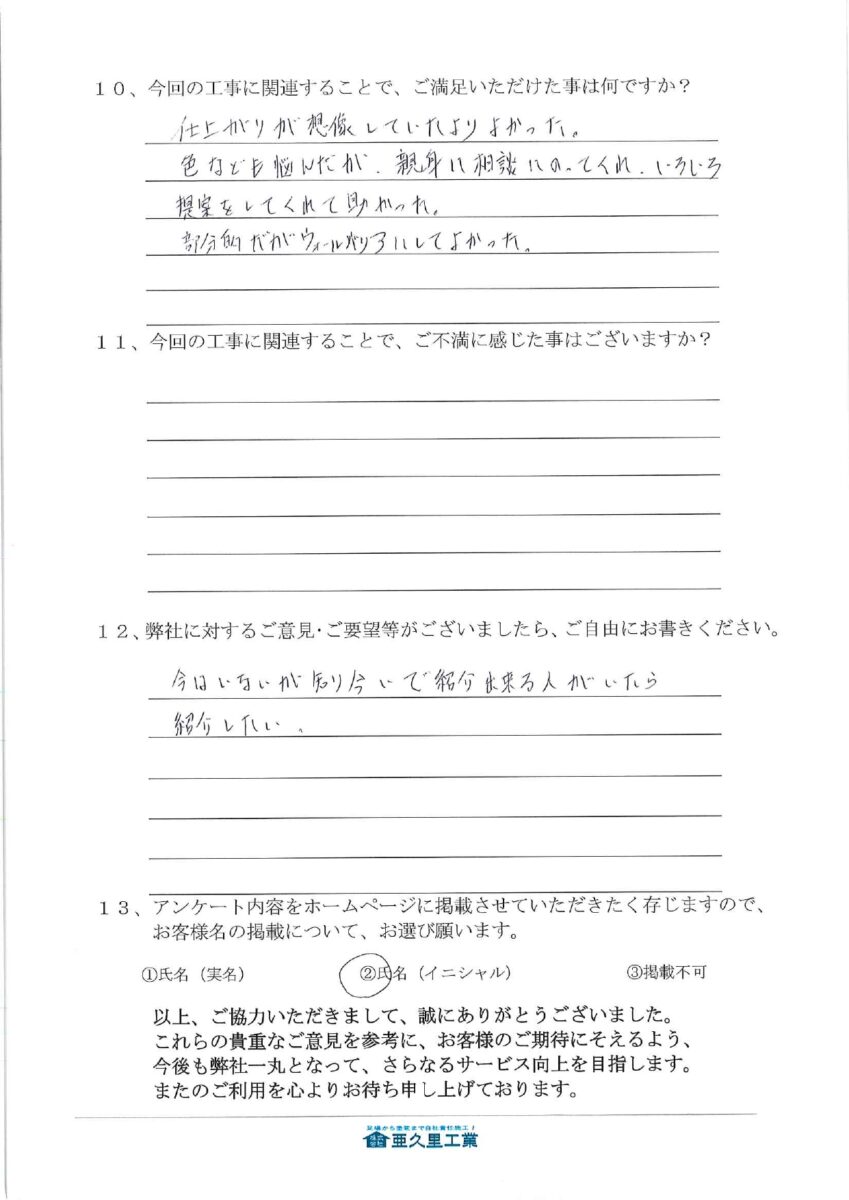 10、今回の工事に関連することで、ご満足いただけた事は何ですか？
仕上がりが想像していたよりよかった。
色なども悩んだが、親身に相談にのってくれ、いろいろ
提案をしてくれて助かった。
部分的だがウォールバリアにしてよかった。
11、今回の工事に関連することで、ご不満に感じた事はございますか？
12、弊社に対するご意見・ご要望等がございましたら、ご自由にお書きください。
今はいないが知り合いで紹介出来る人がいたら
紹介したい。
13、アンケート内容をホームページに掲載させていただきたく存じますので、
お客様名の掲載について、お選び願います。
①氏名（実名） ②氏名（イニシャル） ③掲載不可
以上、ご協力いただきまして、誠にありがとうございました。
これらの貴重なご意見を参考に、お客様のご期待にそえるよう、
今後も弊社一丸となって、さらなるサービス向上を目指します。
またのご利用を心よりお待ち申し上げております。
足場から塗装まで自社責任施工！
亜久里工業